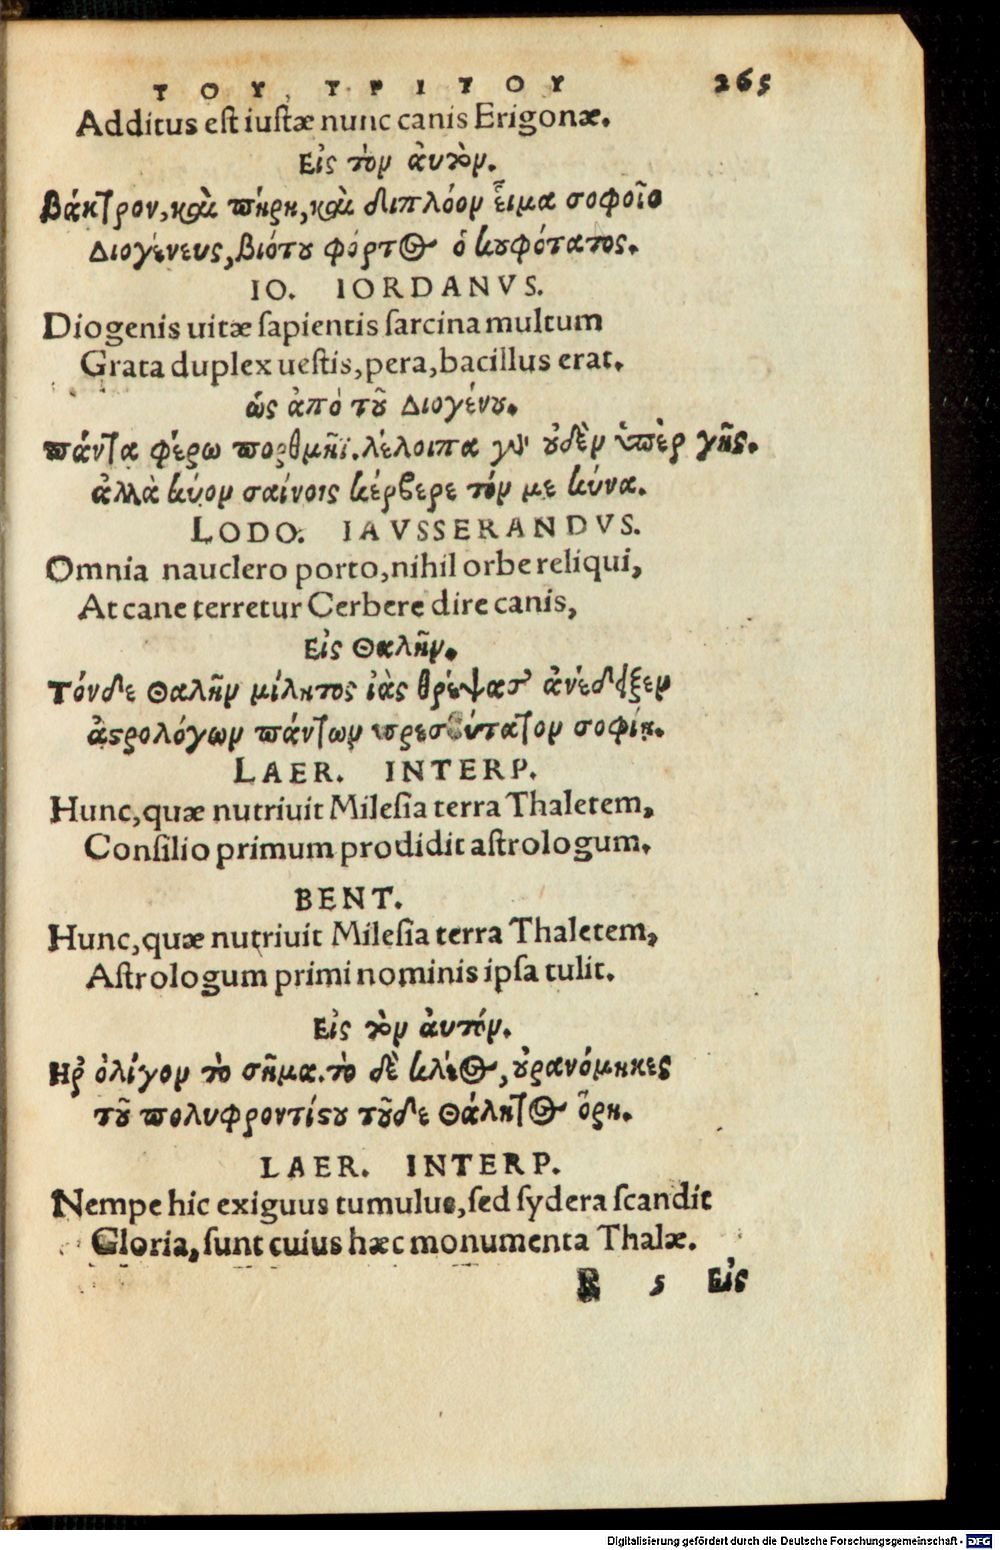 ΤΟΥ ΤΡΙΤΟΥ 265
Additus est iustæ nunc canis Erigonæ.
Εἰς τὸν ἀυτὸν.
Βάκτρον, καὶ πήρη, καὶ διπλόον εἷμα σοφοῖο
Διογένευς, βιότου φόρτος ὁ κουφότατος.
IO. IORDANVS.
Diogenis uitæ sapientis sarcina multum
Grata duplex uestis, pera, bacillus erat.
ὡς ἀπὸ τοῦ Διογένου.
πάντα φέρω πορθμῆϊ. λέλοιπα γὰρ οὐδὲν ὑπὲρ γῆς.
ἀλλὰ κύον σαίνοις κέρβερε τόν με κύνα.
LODO. IAVSSERANDVS.
Omnia nauclero porto, nihil orbe reliqui,
At cane terretur Cerbere dire canis,
Εἰς Θαλῆν.
Τόνδε Θαλῆν μίλητος ἰὰς θρέψασ' ἀνέδειξεν
ἀστρολόγων πάντων πρεσβύτατον σοφίῃ.
LAER. INTERP.
Hunc, quæ nutriuit Milesia terra Thaletem,
Consilio primum prodidit astrologum.
BENT.
Hunc, quæ nutriuit Milesia terra Thaletem,
Astrologum primi nominis ipsa tulit.
Εἰς τὸν ἀυτόν.
Ηρ ὀλίγον τὸ σῆμα. τὸ δὲ κλέος, οὐρανόμηκες
τοῦ πολυφροντίστου τοῦδε Θάλητος ὅρη.
LAER. INTERP.
Nempe hic exiguus tumulus, sed sydera scandit
Gloria, sunt cuius hæc monumenta Thalæ.
R 5 Εἰς
Digitalisierung gefördert durch die Deutsche Forschungsgemeinschaft - DFG